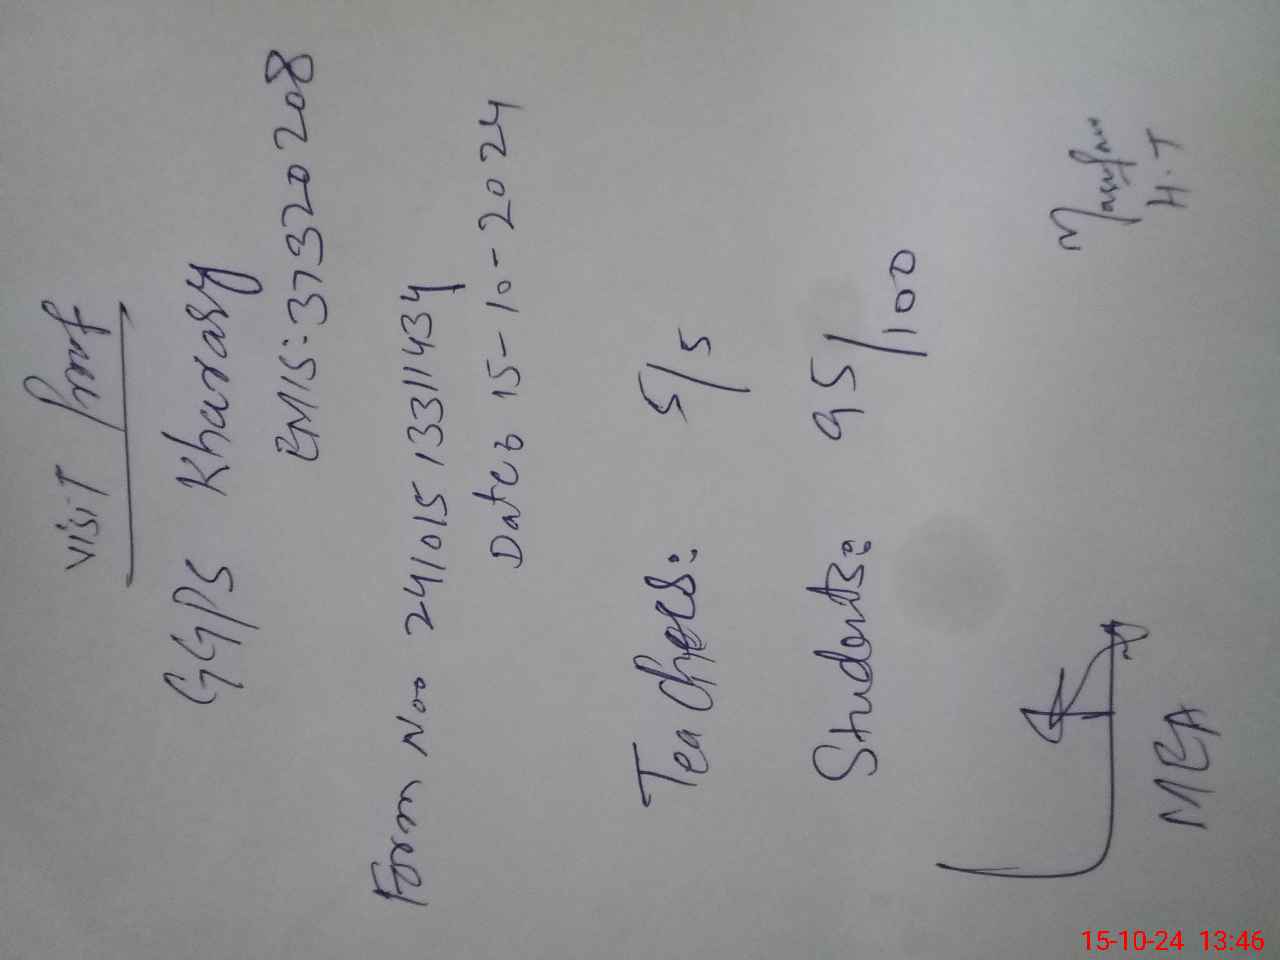 visiT Proof
GGPS Kharasy
EMIS: 37320208
Form No. 241015 13311434
Date: 15-10-2024
Teachers: 5/5
Students: 95/100
H.T
MEA
15-10-24 13:46